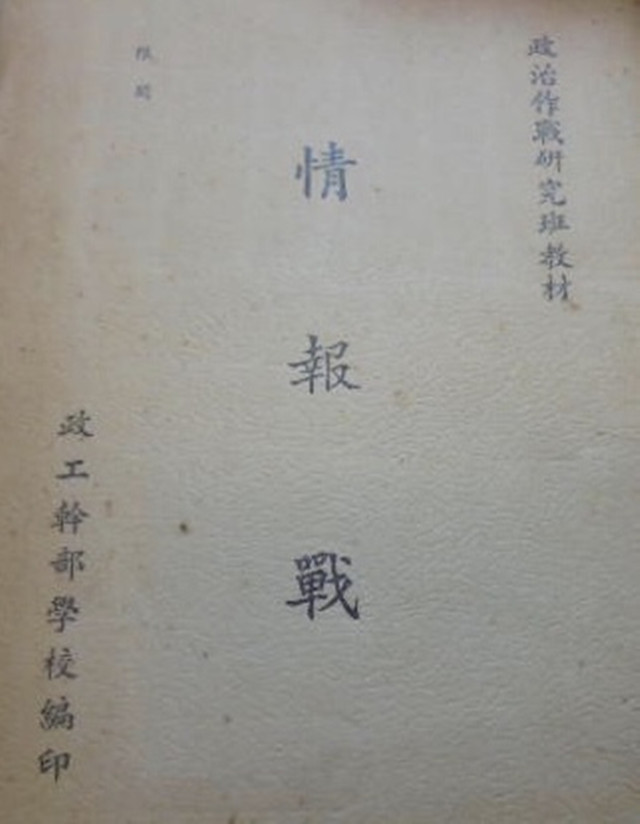 政治作戰研究班教材
情報戰
政工幹部學校編印